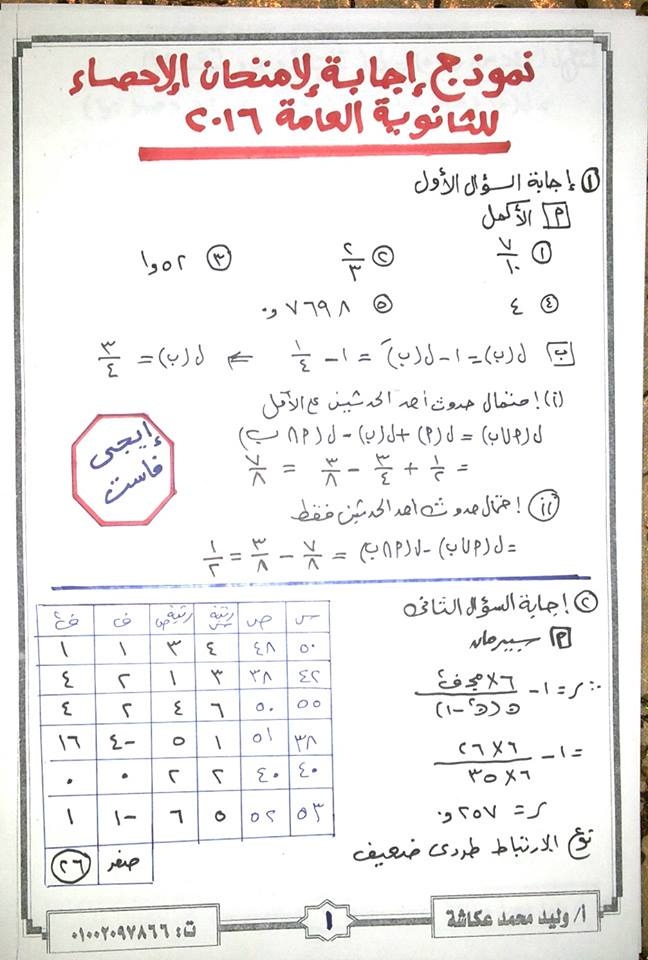 نموذج إجابة لامتحان الإحصاء
للثانوية العامة ٢٠١٦
① إجابة السؤال الأول
أ الأكمل
① ٧/١٠ ② ٢/٣ ③ ٥٢و١
④ ٤ ⑤ ٧٦٩٨و.
ب ل(ب) = ١ - ل(بَ) = ١ - ١/٤ ⇐ ل(ب) = ٣/٤
(i) احتمال حدوث أحد الحدثين على الأقل
ل(A∪ب) = ل(A) + ل(ب) - ل(A∩ب)
= ١/٢ + ٣/٤ - ٣/٨ = ٧/٨
إيجى
فاست
(ii) احتمال حدوث أحد الحدثين فقط
= ل(A∪ب) - ل(A∩ب) = ٧/٨ - ٣/٨ = ١/٢
② إجابة السؤال الثانى
أ سبيرمان
∵ ر = ١ - ٦×مجـ ف٢ / ن(ن٢-١)
= ١ - ٦×٢٦ / ٦×٣٥
ر = ٢٥٧و.
نوع الارتباط طردى ضعيف
س ص رتبة س رتبة ص ف ف٢
٥٠ ٤٨ ٤ ٣ ١ ١
٤٢ ٣٨ ٣ ١ ٢ ٤
٥٥ ٥٠ ٦ ٤ ٢ ٤
٣٨ ٥١ ١ ٥ -٤ ١٦
٤٠ ٤٠ ٢ ٢ ٠ ٠
٥٣ ٥٢ ٥ ٦ -١ ١
صفر ٢٦
أ/ وليد محمد عكاشة
١
ت: ٠١٠٠٢٠٩٧٨٦٦